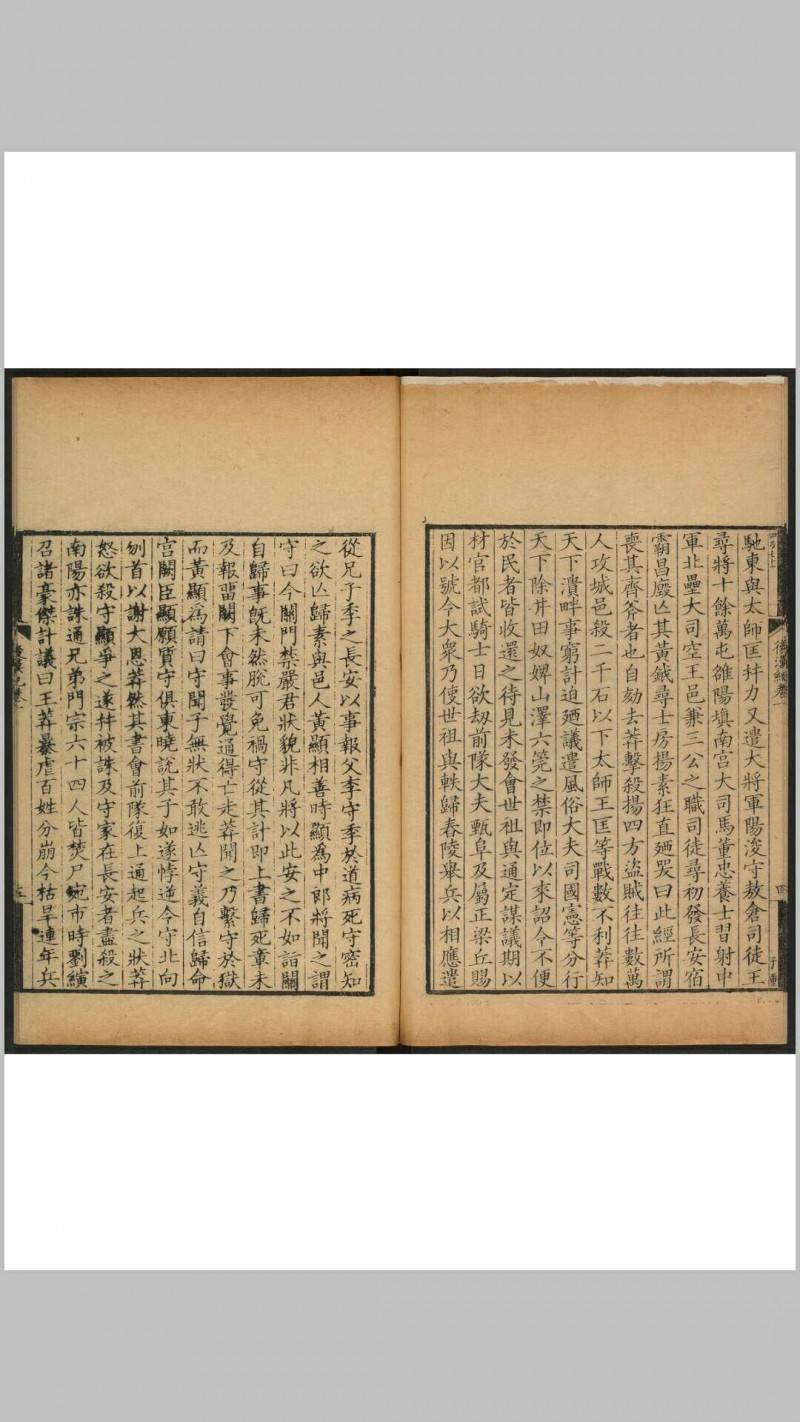 馳東與太師匡幷力又遣大將軍陽浚守敖倉司徒王
尋將十餘萬屯雒陽填南宫大司馬董忠養士習射中
軍北壘大司空王邑兼三公之職司徒尋初發長安宿
霸昌廄亾其黃鉞尋士房揚素狂直廼哭曰此經所謂
喪其齊斧者也自劾去莽擊殺揚四方盜賊往往數萬
人攻城邑殺二千石以下太師王匡等戰數不利莽知
天下潰畔事窮計迫廼議遣風俗大夫司國憲等分行
天下除井田奴婢山澤六筦之禁即位以來詔令不便
於民者皆收還之待見未發會世祖與通定謀議期以
材官都試騎士日欲刼前隊大夫甄阜及屬正梁丘賜
因以號令大衆乃使世祖與軼歸舂陵舉兵以相應遣
後漢紀卷一
四
從兄子季之長安以事報父李守季於道病死守密知
之欲亾歸素與邑人黃顯相善時顯爲中郎將聞之謂
守曰今關門禁嚴君狀貌非凡將以此安之不如詣闕
自歸事旣未然脫可免禍守從其計即上書歸死章未
及報畱闕下會事發覺通得亡走莽聞之乃繫守於獄
而黃顯爲請曰守聞子無狀不敢逃亾守義自信歸命
宫闕臣顯願質守俱東曉說其子如遂悖逆令守北向
刎首以謝大恩莽然其書會前隊復上通起兵之狀莽
怒欲殺守顯爭之遂幷被誅及守家在長安者盡殺之
南陽亦誅通兄弟門宗六十四人皆焚尸宛市時劉縯
召諸豪傑計議曰王莽暴虐百姓分崩今枯旱連年兵